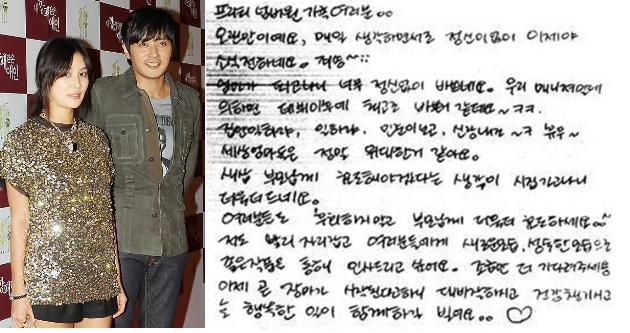 프라티 넘버원 가족여러분○○
오랜만이예요, 매일 생각하면서도 정신없이 이제야
소식전하네요. 정말~;;
엄마가 되고나니 너무 정신없이 바쁘네요. 우리 매니져언니에
의하면 데뷔이후에 최고로 바쁜것같데요~ㅋㅋ.
집안일하랴, 일하랴, 민준이보고, 신랑내조~ㅋ 휴우~
세상엄마들은 정말 위대한거 같아요.
새삼 부모님께 효도해야겠다는 생각이 시집가고나니
더욱더드네요.
여러분들도 후회하지말고 부모님께 더욱더 효도하세요~
저도 빨리 자리잡고 여러분들에게 새로운모습, 성숙한모습으로
좋은작품을 통해 인사드리고 싶어요. 조금만 더 기다려주세용
이제 곧 장마가 시작된다고하니 대비잘하시고 건강챙기시고
늘 행복한 일이 함께하길 빌께요○○ ♡